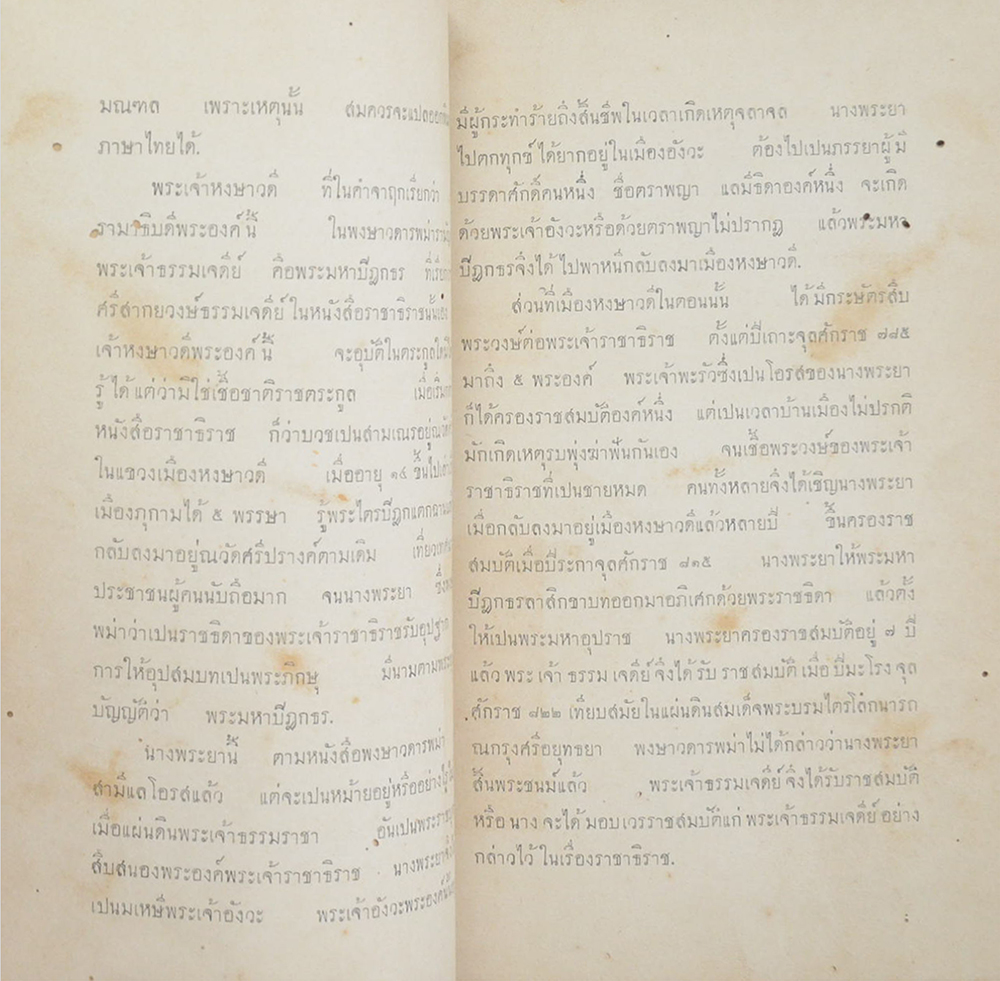 มณฑล เพราะเหตุนั้น สมควรจะแปลออกเป็น
ภาษาไทยได้.
พระเจ้าหงษาวดี ที่ในคำจาฤกเรียกว่า
รามาธิบดีพระองค์นี้ ในพงษาวดารพม่า
พระเจ้าธรรมเจดีย์ คือพระมหาปีฎกธร ที่เรียก
ศรีสากยวงษ์ธรรมเจดีย์ ในหนังสือราชาธิราชนั้นเอง
เจ้าหงษาวดีพระองค์นี้ จะอุบัติในตระกูลใดไม่
รู้ได้ แต่ว่ามิใช่เชื้อชาติราชตระกูล เมื่อเริ่ม
หนังสือราชาธิราช ก็ว่าบวชเปนสามเณรอยู่ณวัด
ในแขวงเมืองหงษาวดี เมื่ออายุ ๑๔ ขึ้นไป
เมืองภุกามได้ ๕ พรรษา รู้พระไตรปีฎกแตกฉาน
กลับลงมาอยู่ณวัดศรีปรางค์ตามเดิม เที่ยวเทศน์
ประชาชนผู้คนนับถือมาก จนนางพระยา ซึ่ง
พม่าว่าเปนราชธิดาของพระเจ้าราชาธิราชรับอุปฐาก
การให้อุปสมบทเปนพระภิกษุ มีนามตามพระ
บัญญัติว่า พระมหาปีฎกธร.
นางพระยานี้ ตามหนังสือพงษาวดารพม่า
สามีแลโอรสแล้ว แต่จะเปนหม้ายอยู่หรืออย่างไร
เมื่อแผ่นดินพระเจ้าธรรมราชา อันเปนพระราช
สืบสนองพระองค์พระเจ้าราชาธิราช นางพระยา
เปนมเหษีพระเจ้าอังวะ พระเจ้าอังวะพระองค์นั้น
มีผู้กระทำร้ายถึงสิ้นชีพในเวลาเกิดเหตุจลาจล นางพระยา
ไปตกทุกข์ได้ยากอยู่ในเมืองอังวะ ต้องไปเปนภรรยาผู้มี
บรรดาศักดิ์คนหนึ่ง ชื่อตราพญา แลมีธิดาองค์หนึ่ง จะเกิด
ด้วยพระเจ้าอังวะหรือด้วยตราพญาไม่ปรากฏ แล้วพระมหา
ปีฎกธรจึงได้ไปพาหนีกลับลงมาเมืองหงษาวดี.
ส่วนที่เมืองหงษาวดีในตอนนั้น ได้มีกระษัตรสืบ
พระวงษ์ต่อพระเจ้าราชาธิราช ตั้งแต่ปีเถาะจุลศักราช ๗๘๕
มาถึง ๕ พระองค์ พระเจ้าพะรัวซึ่งเปนโอรสของนางพระยา
ก็ได้ครองราชสมบัติองค์หนึ่ง แต่เปนเวลาบ้านเมืองไม่ปรกติ
มักเกิดเหตุรบพุ่งฆ่าฟันกันเอง จนเชื้อพระวงษ์ของพระเจ้า
ราชาธิราชที่เปนชายหมด คนทั้งหลายจึงได้เชิญนางพระยา
เมื่อกลับลงมาอยู่เมืองหงษาวดีแล้วหลายปี ขึ้นครองราช
สมบัติเมื่อปีระกาจุลศักราช ๘๑๕ นางพระยาให้พระมหา
ปีฎกธรลาสิกขาบทออกมาอภิเศกด้วยพระราชธิดา แล้วตั้ง
ให้เปนพระมหาอุปราช นางพระยาครองราชสมบัติอยู่ ๗ ปี
แล้ว พระเจ้าธรรมเจดีย์จึงได้รับราชสมบัติเมื่อปีมะโรงจุล
ศักราช ๘๒๒ เทียบสมัยในแผ่นดินสมเด็จพระบรมไตรโลกนารถ
ณกรุงศรีอยุทธยา พงษาวดารพม่าไม่ได้กล่าวว่านางพระยา
สิ้นพระชนม์แล้ว พระเจ้าธรรมเจดีย์ จึงได้รับราชสมบัติ
หรือนางจะได้มอบเวรราชสมบัติแก่พระเจ้าธรรมเจดีย์อย่าง
กล่าวไว้ในเรื่องราชาธิราช.